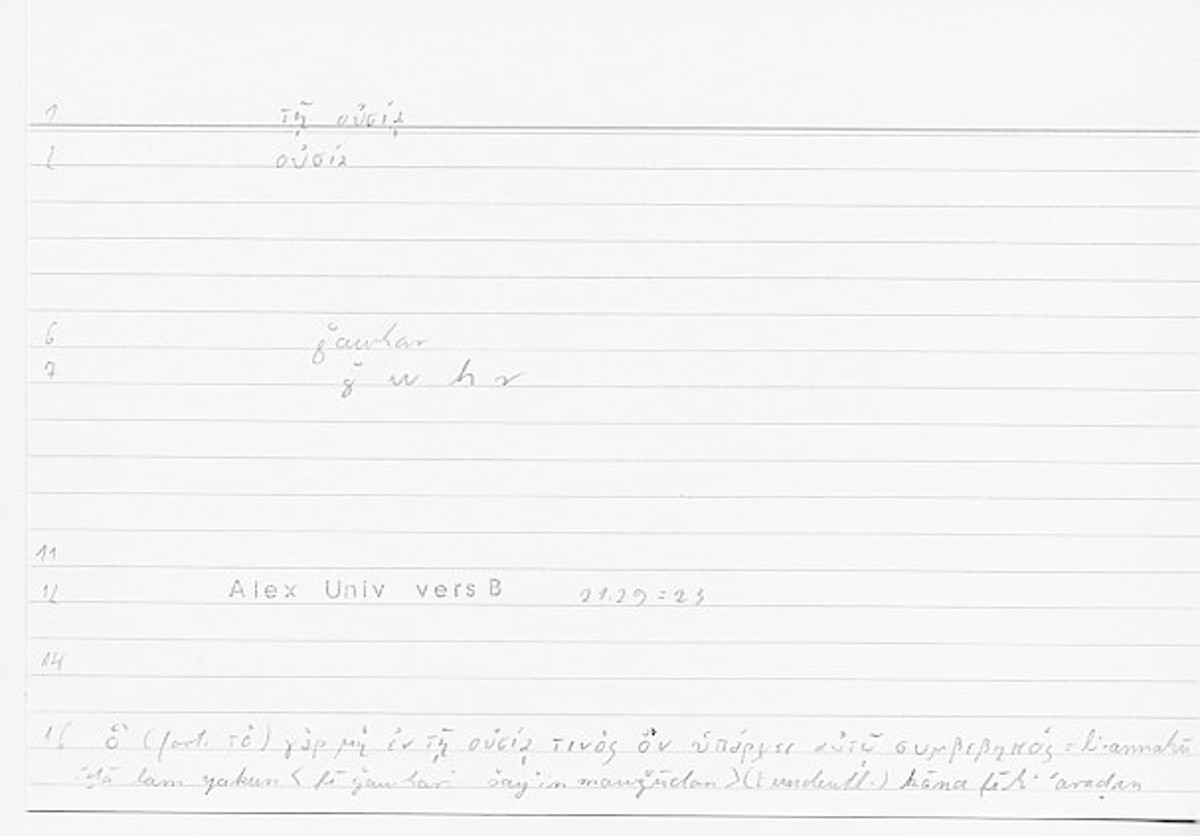 1 τῇ οὐσίᾳ
2 οὐσία
6 ǧauhar
7 ǧ w h r
11
12 Alex Univ vers B 21.29 = 23
14
15 ὃ (fort. τὸ) γὰρ μὴ ἐν τῇ οὐσίᾳ τινὸς ὂν ὑπάρχει αὐτῷ συμβεβηκός = li-annahū
iḏā lam yakun < fī ǧauhari šayʾin mauǧūdan > (undeutl.) kāna fīhi ʿaraḍan